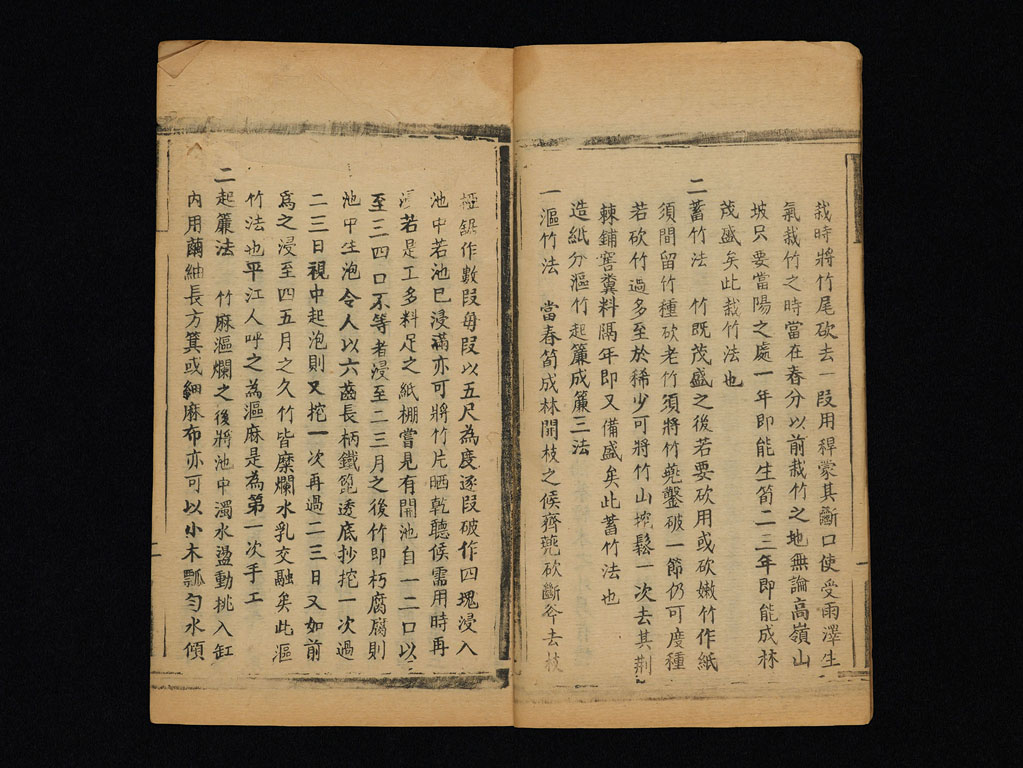 栽時將竹尾砍去一段用稈蒙其斷口使受雨澤生
氣栽竹之時當在春分以前栽竹之地無論高嶺山
坡只要當陽之處一年即能生筍二三年即能成林
茂盛矣此栽竹法也
二蓄竹法 竹既茂盛之後若要砍用或砍嫩竹作紙
須間留竹種砍老竹須將竹蔸鑿破一節仍可度種
若砍竹過多至於稀少可將竹山挖鬆一次去其荆
棘鋪窖糞料隔年即又備盛矣此蓄竹法也
造紙分漚竹起簾成簾三法
一漚竹法 當春筍成林開枝之候齊蔸砍斷 去枝
椏鋸作數段每段以五尺為度逐段破作四塊浸入
池中若池已浸滿亦可將竹片晒乾聽候需用時再
浸若是工多料足之紙棚嘗見有開池自一二口以
至三四口不等者浸至二三月之後竹即朽腐腐則
池中生泡令人以六齒長柄鐵鈀透底抄挖一次過
二三日視中起泡則又挖一次再過二三日又如前
爲之浸至四五月之久竹皆糜爛水乳交融矣此漚
竹法也平江人呼之為漚麻是為第一次手工
二起簾法 竹麻漚爛之後將池中濁水盪動挑入缸
內用繭紬長方箕或細麻布亦可以小木瓢勻水傾